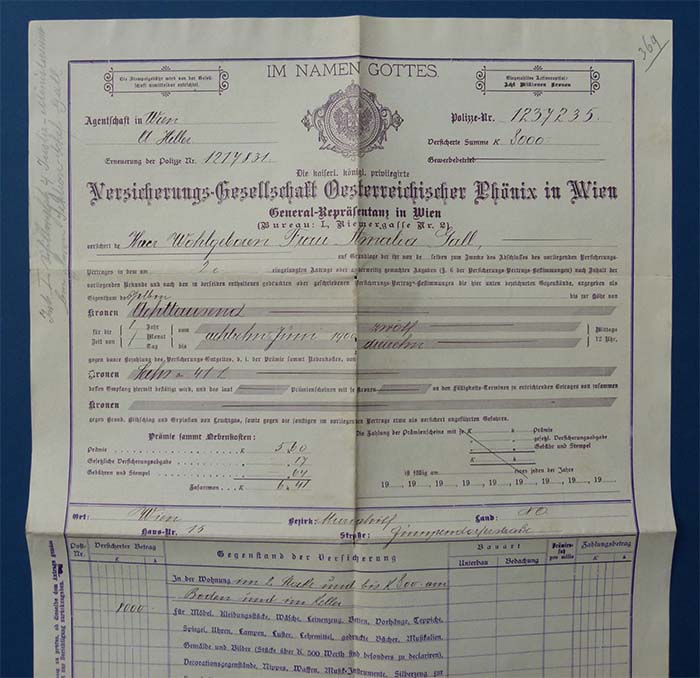 369
IM NAMEN GOTTES.
Die Stempelgebühr wird von der Gesell-
schaft unmittelbar entrichtet.
Eingezahltes Actiencapital:
Acht Millionen Kronen
Agentschaft in Wien
Heller
Erneuerung der Polizze Nr. 1217831
Polizze-Nr. 1237235.
Versicherte Summe K 8000.-
Gewerbebetrieb
Die kaiserl. königl. privilegirte
Versicherungs-Gesellschaft Oesterreichischer Phönix in Wien
General-Repräsentanz in Wien
(Bureau: I., Riemergasse Nr. 2)
versichert die Hoch Wohlgeboren Frau Amalia Gall,
auf Grundlage der von derselben zum Zwecke des Abschlusses des vorliegenden Versicherungs-
Vertrages in dem am eingelangten Antrage oder anderweitig gemachten Angaben (§. 6 der Versicherungs-Vertrags-Bestimmungen) nach Inhalt der
vorliegenden Urkunde und nach den in derselben enthaltenen gedruckten oder geschriebenen Versicherungs-Vertrags-Bestimmungen die hier unten bezeichneten Gegenstände, angegeben als
Eigenthum desselben bis zur Höhe von
Kronen Achttausend
für die Zeit von 1 Jahr Monat Tag vom achtzehn Juni zwölf Mittags 12 Uhr,
bis
gegen baare Bezahlung des Versicherungs-Entgeltes, d. i. der Prämie sammt Nebenkosten, von
Kronen Sechs 41
dessen Empfang hiermit bestätigt wird, und des laut Prämienscheinen mit je Kronen an den Fälligkeits-Terminen zu entrichtenden Betrages von zusammen
Kronen
gegen Brand, Blitzschlag und Explosion von Leuchtgas, sowie gegen die sonstigen im vorliegenden Vertrage etwa als versichert angeführten Gefahren.
Prämie sammt Nebenkosten:
Prämie K 5.60
Gesetzliche Versicherungsabgabe .17
Gebühren und Stempel .64
Zusammen K 6.41
Die Zahlung der Prämienscheine mit je K Prämie
gesetzl. Versicherungsabgabe
Gebühr und Stempel
K
ist fällig am eines jeden der Jahre
19 19 19 19 19 19 19
Ort: Wien Bezirk: Mariahilf Land: NÖ
Haus-Nr. 15 Straße: Gumpendorferstraße
Post-Nr.
Versicherter Betrag
K
Gegenstand der Versicherung
Bauart
Unterbau
Bedachung
Prämiensatz pro mille
Zahlungsbetrag
K
In der Wohnung im 2. Stocke und bis K 800 am
Boden und im Keller
8000
Für Möbel, Kleidungsstücke, Wäsche, Leinenzeug, Betten, Vorhänge, Teppiche,
Spiegel, Uhren, Lampen, Luster, Lehrmittel, gedruckte Bücher, Musikalien,
Gemälde und Bilder (Stücke über K. 500 Werth sind besonders zu declariren),
Decorationsgegenstände, Nippes, Waffen, Musik-Instrumente, Silberzeug zur